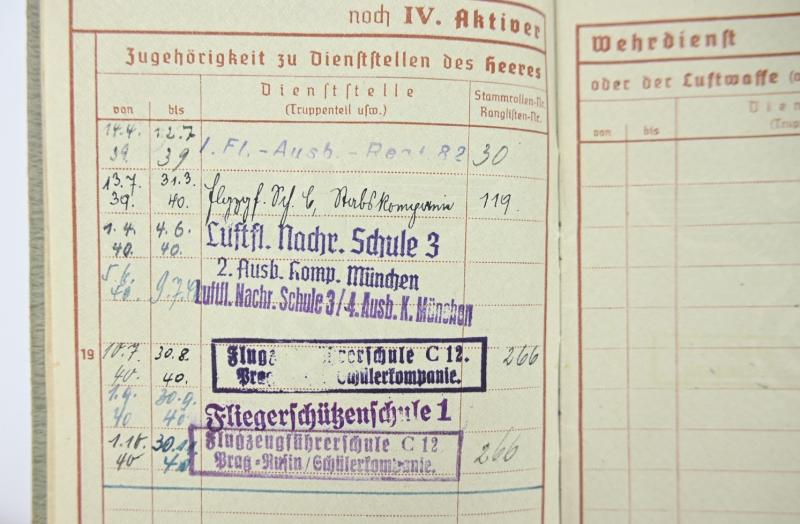 noch IV. Aktiver
Zugehörigkeit zu Dienststellen des Heeres
von bis Dienststelle
(Truppenteil usw.) Stammrollen-Nr.
Ranglisten-Nr.
14.4. 12.7
39. 39 1. Fl.-Ausb.-Regt. 82 30
13.7. 31.3.
39. 40. Flgzgf. Sch. C, Stabskompanie 119.
1.4. 4.6. Luftfl. Nachr. Schule 3
40. 40. 2. Ausb. Komp. München
5.6. 9.7.
40. Luftfl. Nachr. Schule 3/4. Ausb. K. München
19 10.7. 30.8. C 12. 266
40. 40. Schülerkompanie.
1.9. 30.9.
40 40. Fliegerschützenschule 1
1.10. Flugzeugführerschule C 12.
40 Prag-Rusin/Schülerkompanie. 266
Wehrdienst
oder der Luftwaffe
von bis